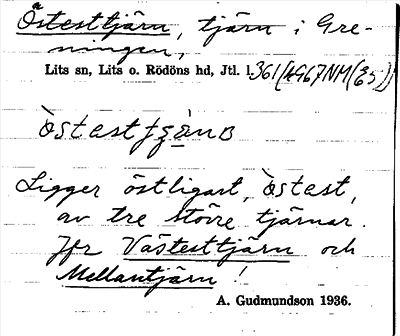 Östesttjärn, tjärn i Gre-
ningen,
Lits sn, Lits o. Rödöns hd, Jtl. l.
òstest
Ligger östligast, òstest,
av tre större tjärnar.
Jfr Västesttjärn och
Mellantjärn!
A. Gudmundson 1936.